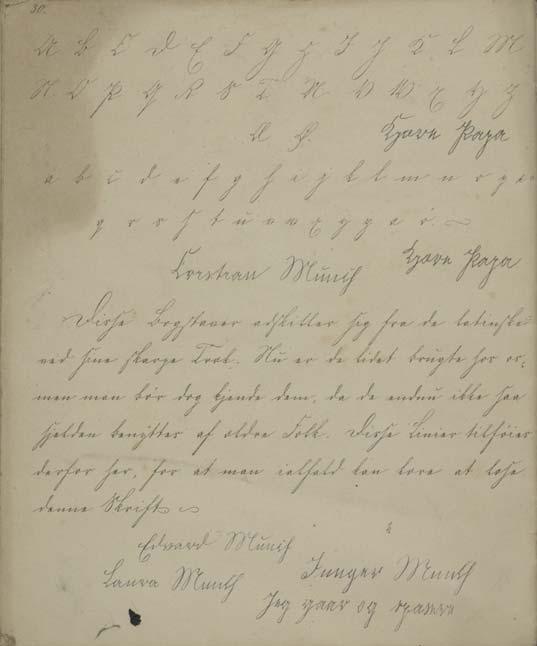 30.
A B C D E F G H I J K L M
N O P Q R S T U V W X Y Z
Æ Ø. Kjære Papa
a b c d e f g h i j k l m n o p
q r s s t u v w x y z æ ø.
Cristian Munch Kjære Papa
Disse Bogstaver adskiller sig fra de latinske
ved sine skarpe Træk. Nu er de lidet brugte hos os;
men man bør dog kjende dem, da de endnu ikke saa
sjelden benyttes af ældre Folk. Disse Linier tilføies
derfor her, for at man ialfald kan lære at læse
denne Skrift
Edvard Munch
Laura Munch Innger Munch
Jeg gaar og spasere